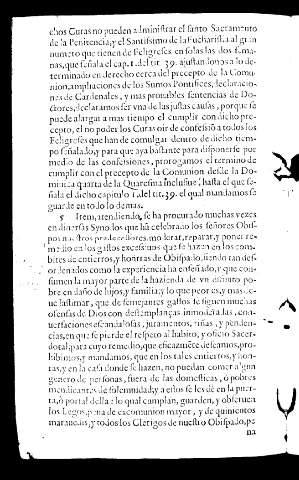 chos Curas no pueden administrar el santo Sacramento
de la Penitencia, y el Santissimo de la Eucharistia al gran
numero que tienen de Feligreses en solas las dos sema-
nas, que señala el cap. 1. del tit. 39. ajustandonos a lo de-
terminado en derecho cerca del precepto de la Comu-
nion, ampliaciones de los Sumos Pontifices, declaracio-
nes de Cardenales, y mas prouables sentencias de Do-
ctores, declaramos ser vna de las justas causas, porque se
puede alargar a mas tiempo el cumplir con dicho pre-
cepto, el no poder los Curas oir de confession a todos los
Feligreses que han de comulgar dentro de dicho tiem-
po señalado, y para que aya bastante para disponerse por
medio de las confessiones, prorogamos el termino de
cumplir con el precepto de la Comunion desde la Do-
minica quarta de la Quaresma inclusiuè, hasta el que se-
ñala el dicho capitulo 1. del tit. 39. el qual mandamos se
guarde en todo lo demas.
5 Item, atendiendo, se ha procurado muchas vezes
en diuersas Synodos que ha celebrado los señores Obis-
pos nuestros predecessores, moderar, reparar, y poner re-
medio en los gastos excessiuos que se hazen en los com-
bites de entierros, y honras de Obispado, siendo tan des-
ordenados como la experiencia ha enseñado, y que con-
sumen la mayor parte de la hazienda de vn difunto po-
bre en daño de sus hijos, y familia, y lo que peor es, y mas se de-
ue lastimar, que de semejantes gastos se siguen muchas
ofensas de Dios con destemplanças inmodestas, con-
uersaciones escandalosas, juramentos, riñas, y penden-
cias, en que se pierde el respeto al habito, y oficio Sacer-
dotal, para cuyo remedio, que eficazmête deseamos, pro-
hibimos, y mandamos, que en los tales entierros, y hon-
ras, y en la casa donde se hazen, no puedan comer algun
genero de personas, fuera de las domesticas, ò pobres
mendicantes de solemnidad, y a estos se les dè en la puer-
ta, ò portal della: lo qual cumplan, guarden, y obseruen
los Legos, pena de excomunion mayor, y de quinientos
marauedis, y todos los Clerigos de nuestro Obispado, pe
na